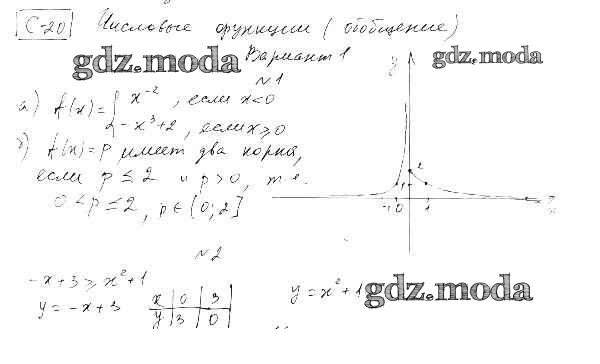 С-20 Числовые функции (обобщение)
gdz.moda Вариант 1 gdz.moda
№1
а) f(x)={ x⁻², если x<0
-x³+2, если x≥0
б) f(x)=p имеет два корня,
если p≤2 и p>0, т.е.
0<p≤2, p∈(0;2]
y
2
1
-1 0 1 x
№2
-x+3≥x²+1
y=-x+3 x | 0 | 3 y=x²+1 gdz.moda
y | 3 | 0